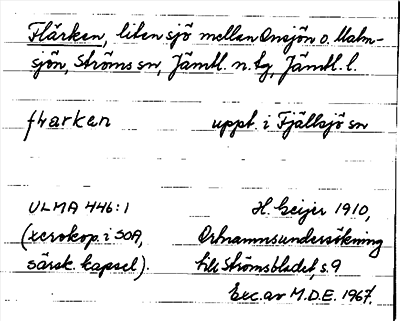 Flärken, liten sjö mellan Onsjön o. Malm-
sjön, Ströms sn, Jämtl. n. tg, Jämtl. l.
flarken uppt. i Fjällsjö sn
ULMA 446:1 H. Geijer 1910,
(xerokop. i SOA, Ortnamnsundersökning
särsk. kapsel). till Strömsbladet, s. 9
Exc. av M.D.E. 1967.